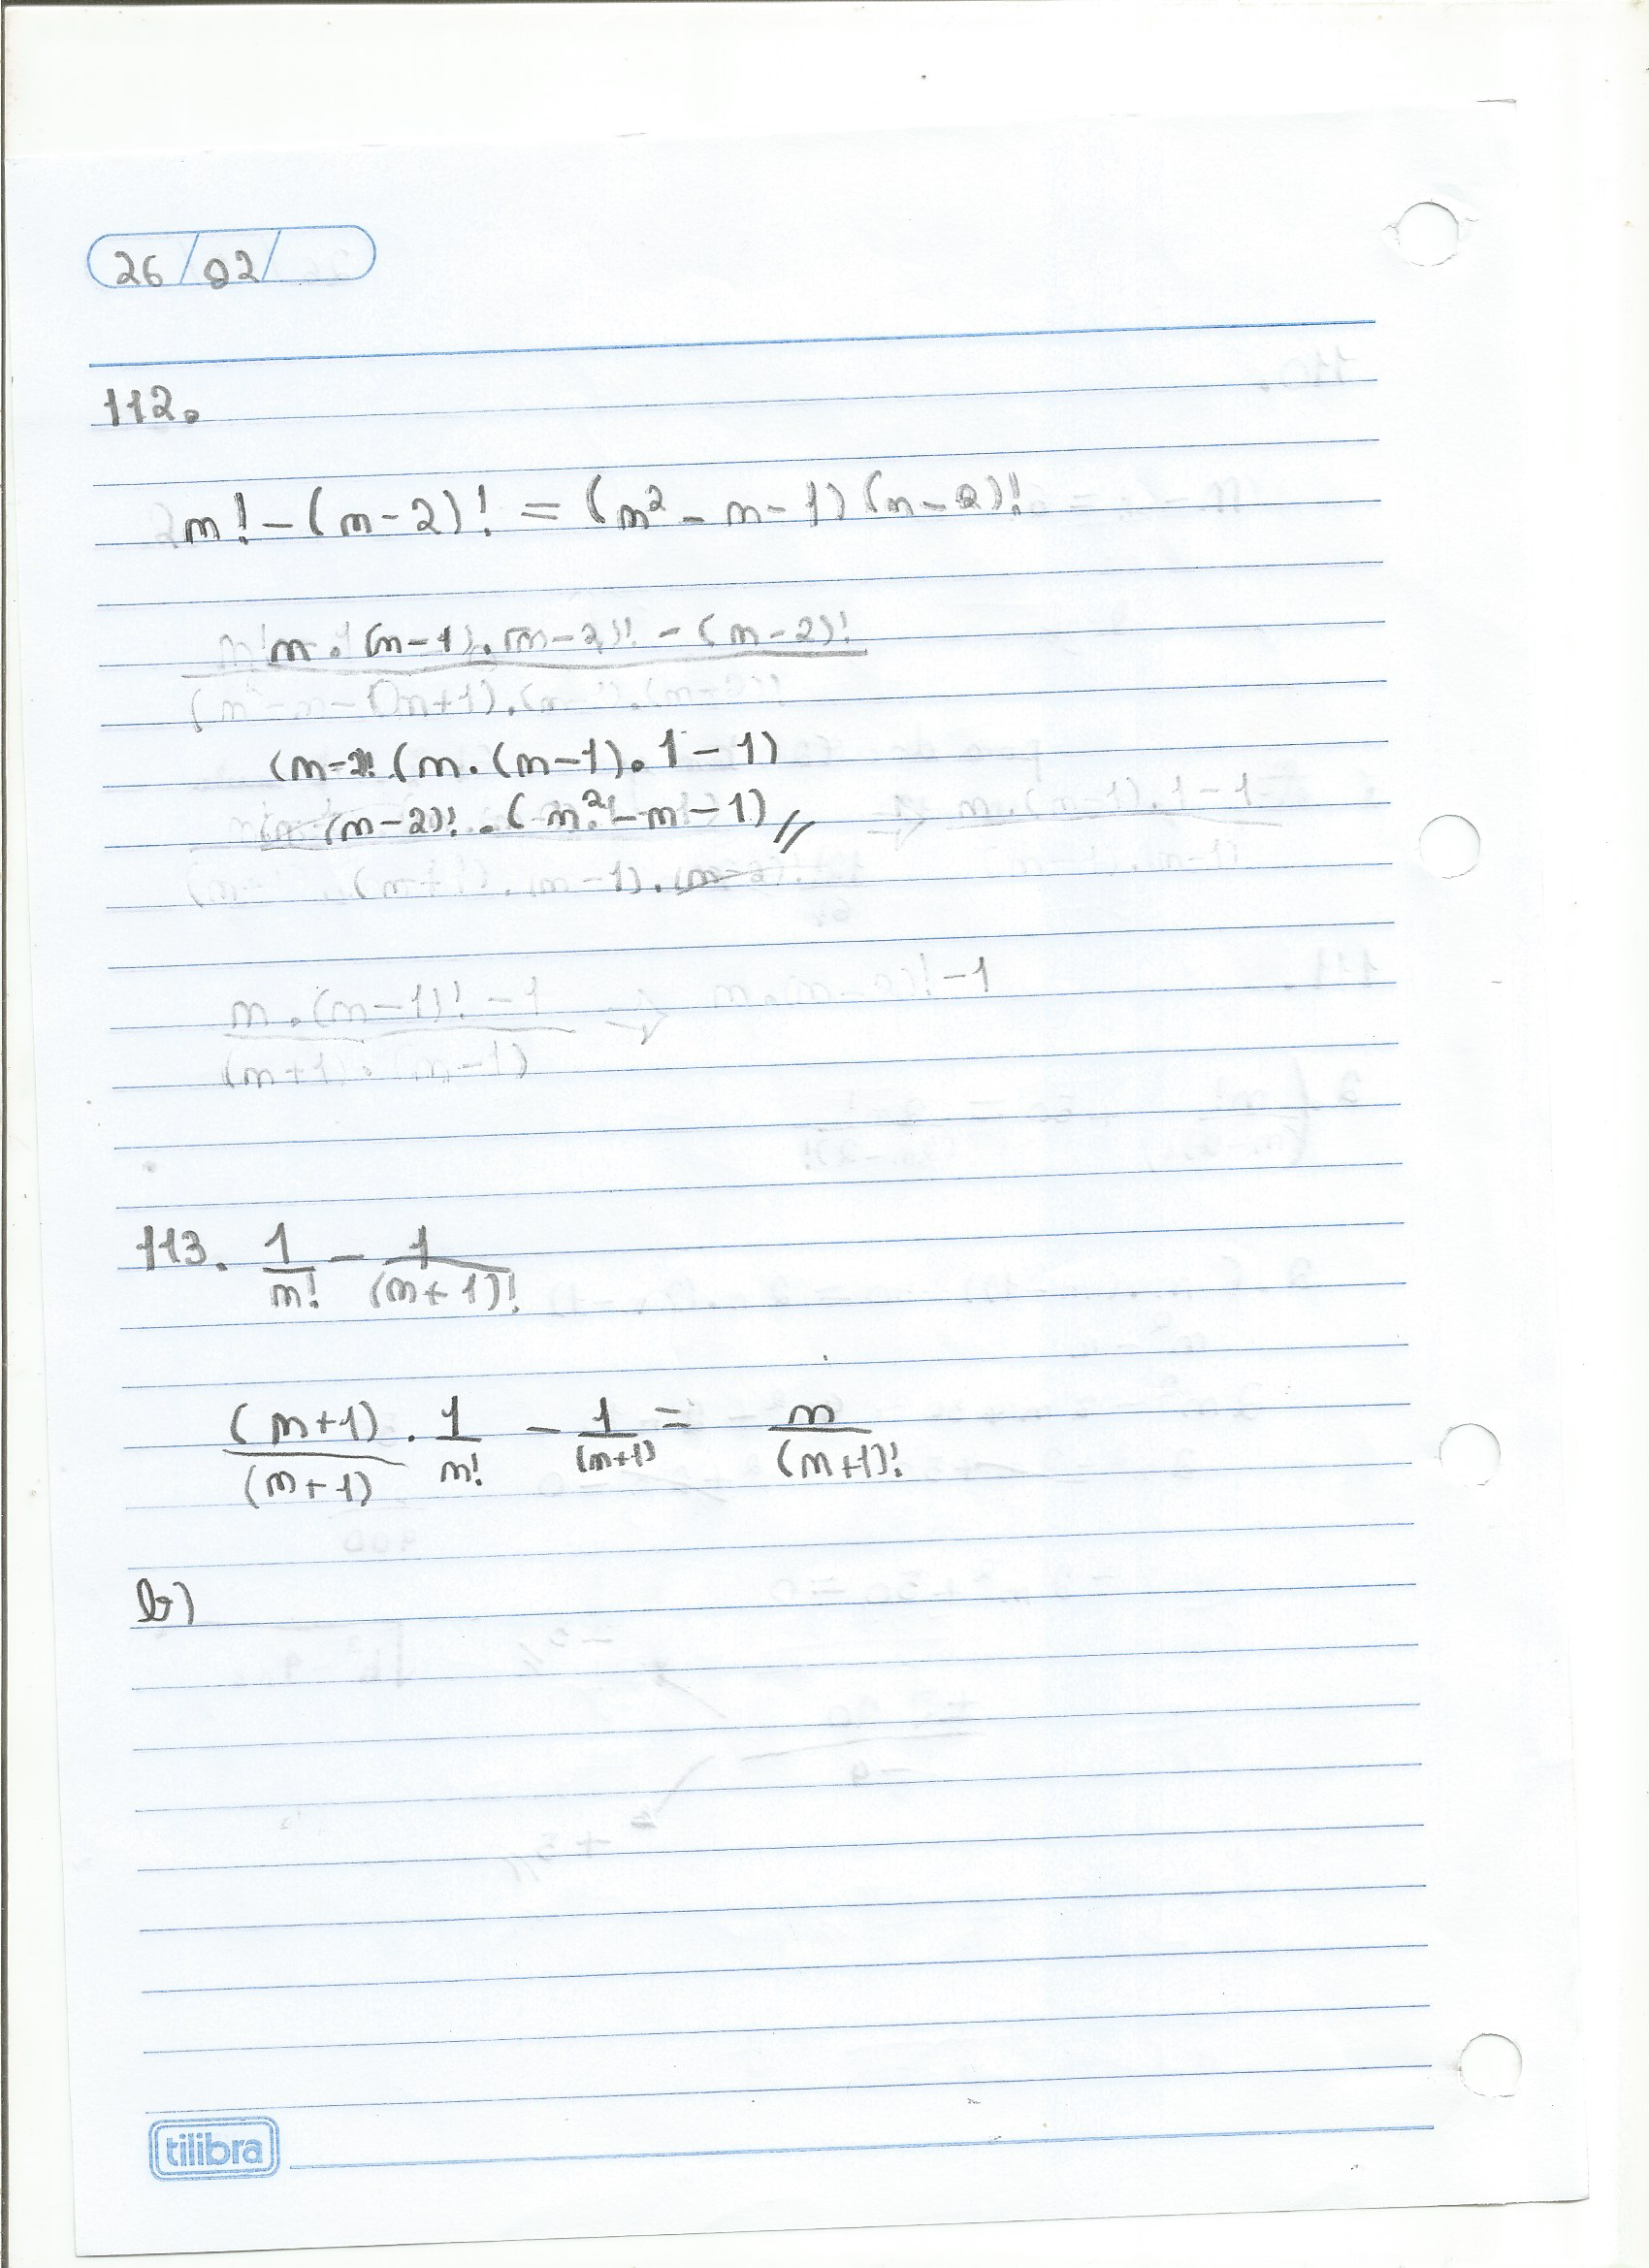 26/02/
112.
m! - (m-2)! = (m² - m - 1)(m-2)!
m.(m-1).(m-2)! - (m-2)!
(m-2)! (m.(m-1).1 - 1)
(m-2)! . (m² - m - 1)//
m.(m-1)! - 1
113. 1/m! - 1/(m+1)!
(m+1)/(m+1) . 1/m! - 1/(m+1) = m/(m+1)!
b)
tilibra